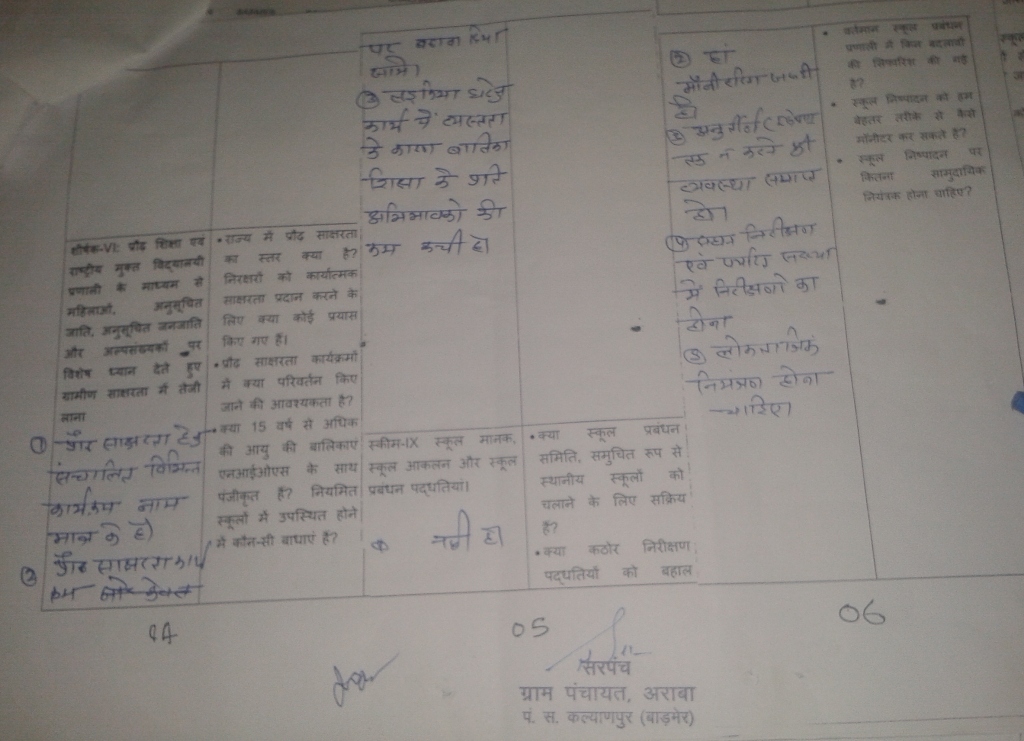 शीर्षक-VI: प्रौढ़ शिक्षा एवं
राष्ट्रीय मुक्त विद्यालयी
प्रणाली के माध्यम से
महिलाओं, अनुसूचित
जाति, अनुसूचित जनजाति
और अल्पसंख्यकों पर
विशेष ध्यान देते हुए
ग्रामीण साक्षरता में तेजी
लाना
① प्रौढ साक्षरता हेतु
संचालित विभिन्न
कार्यक्रम नाम
मात्र के है।
② प्रौढ साक्षरता
• राज्य में प्रौढ़ साक्षरता
का स्तर क्या है?
निरक्षरों को कार्यात्मक
साक्षरता प्रदान करने के
लिए क्या कोई प्रयास
किए गए हैं।
• प्रौढ़ साक्षरता कार्यक्रमों
में क्या परिवर्तन किए
जाने की आवश्यकता है?
• क्या 15 वर्ष से अधिक
की आयु की बालिकाएं
एनआईओएस के साथ
पंजीकृत हैं? नियमित
स्कूलों में उपस्थित होने
में कौन-सी बाधाएं हैं?
पर
जाये।
③ लड़कियां घरेलु
कार्य में व्यस्तता
के कारण बालिका
शिक्षा के प्रति
अभिभावको की
कम रूची है
स्कीम-IX स्कूल मानक,
स्कूल आकलन और स्कूल
प्रबंधन पद्धतियां।
① नही है।
• क्या स्कूल प्रबंधन
समिति, समुचित रूप से
स्थानीय स्कूलों को
चलाने के लिए सक्रिय
हैं?
• क्या कठोर निरीक्षण
पद्धतियों को बहाल
② हां
मौनीटरिंग जरूरी
है।
③ अनुतीर्ण
तक न करने की
व्यवस्था समाप्त
हो।
④ निरीक्षण
एवं पर्याप्त संख्या
में निरीक्षको का
होना
⑤ लोकतांत्रिक
नियंत्रण होना
चाहिए।
• वर्तमान स्कूल प्रबंधन
प्रणाली में किन बदलावों
की सिफारिश की गई
है?
• स्कूल निष्पादन को हम
बेहतर तरीके से कैसे
मॉनीटर कर सकते हैं?
• स्कूल निष्पादन पर
कितना सामुदायिक
नियंत्रक होना चाहिए?
05
06
सरपंच
ग्राम पंचायत, अराबा
पं. स. कल्याणपुर (बाड़मेर)